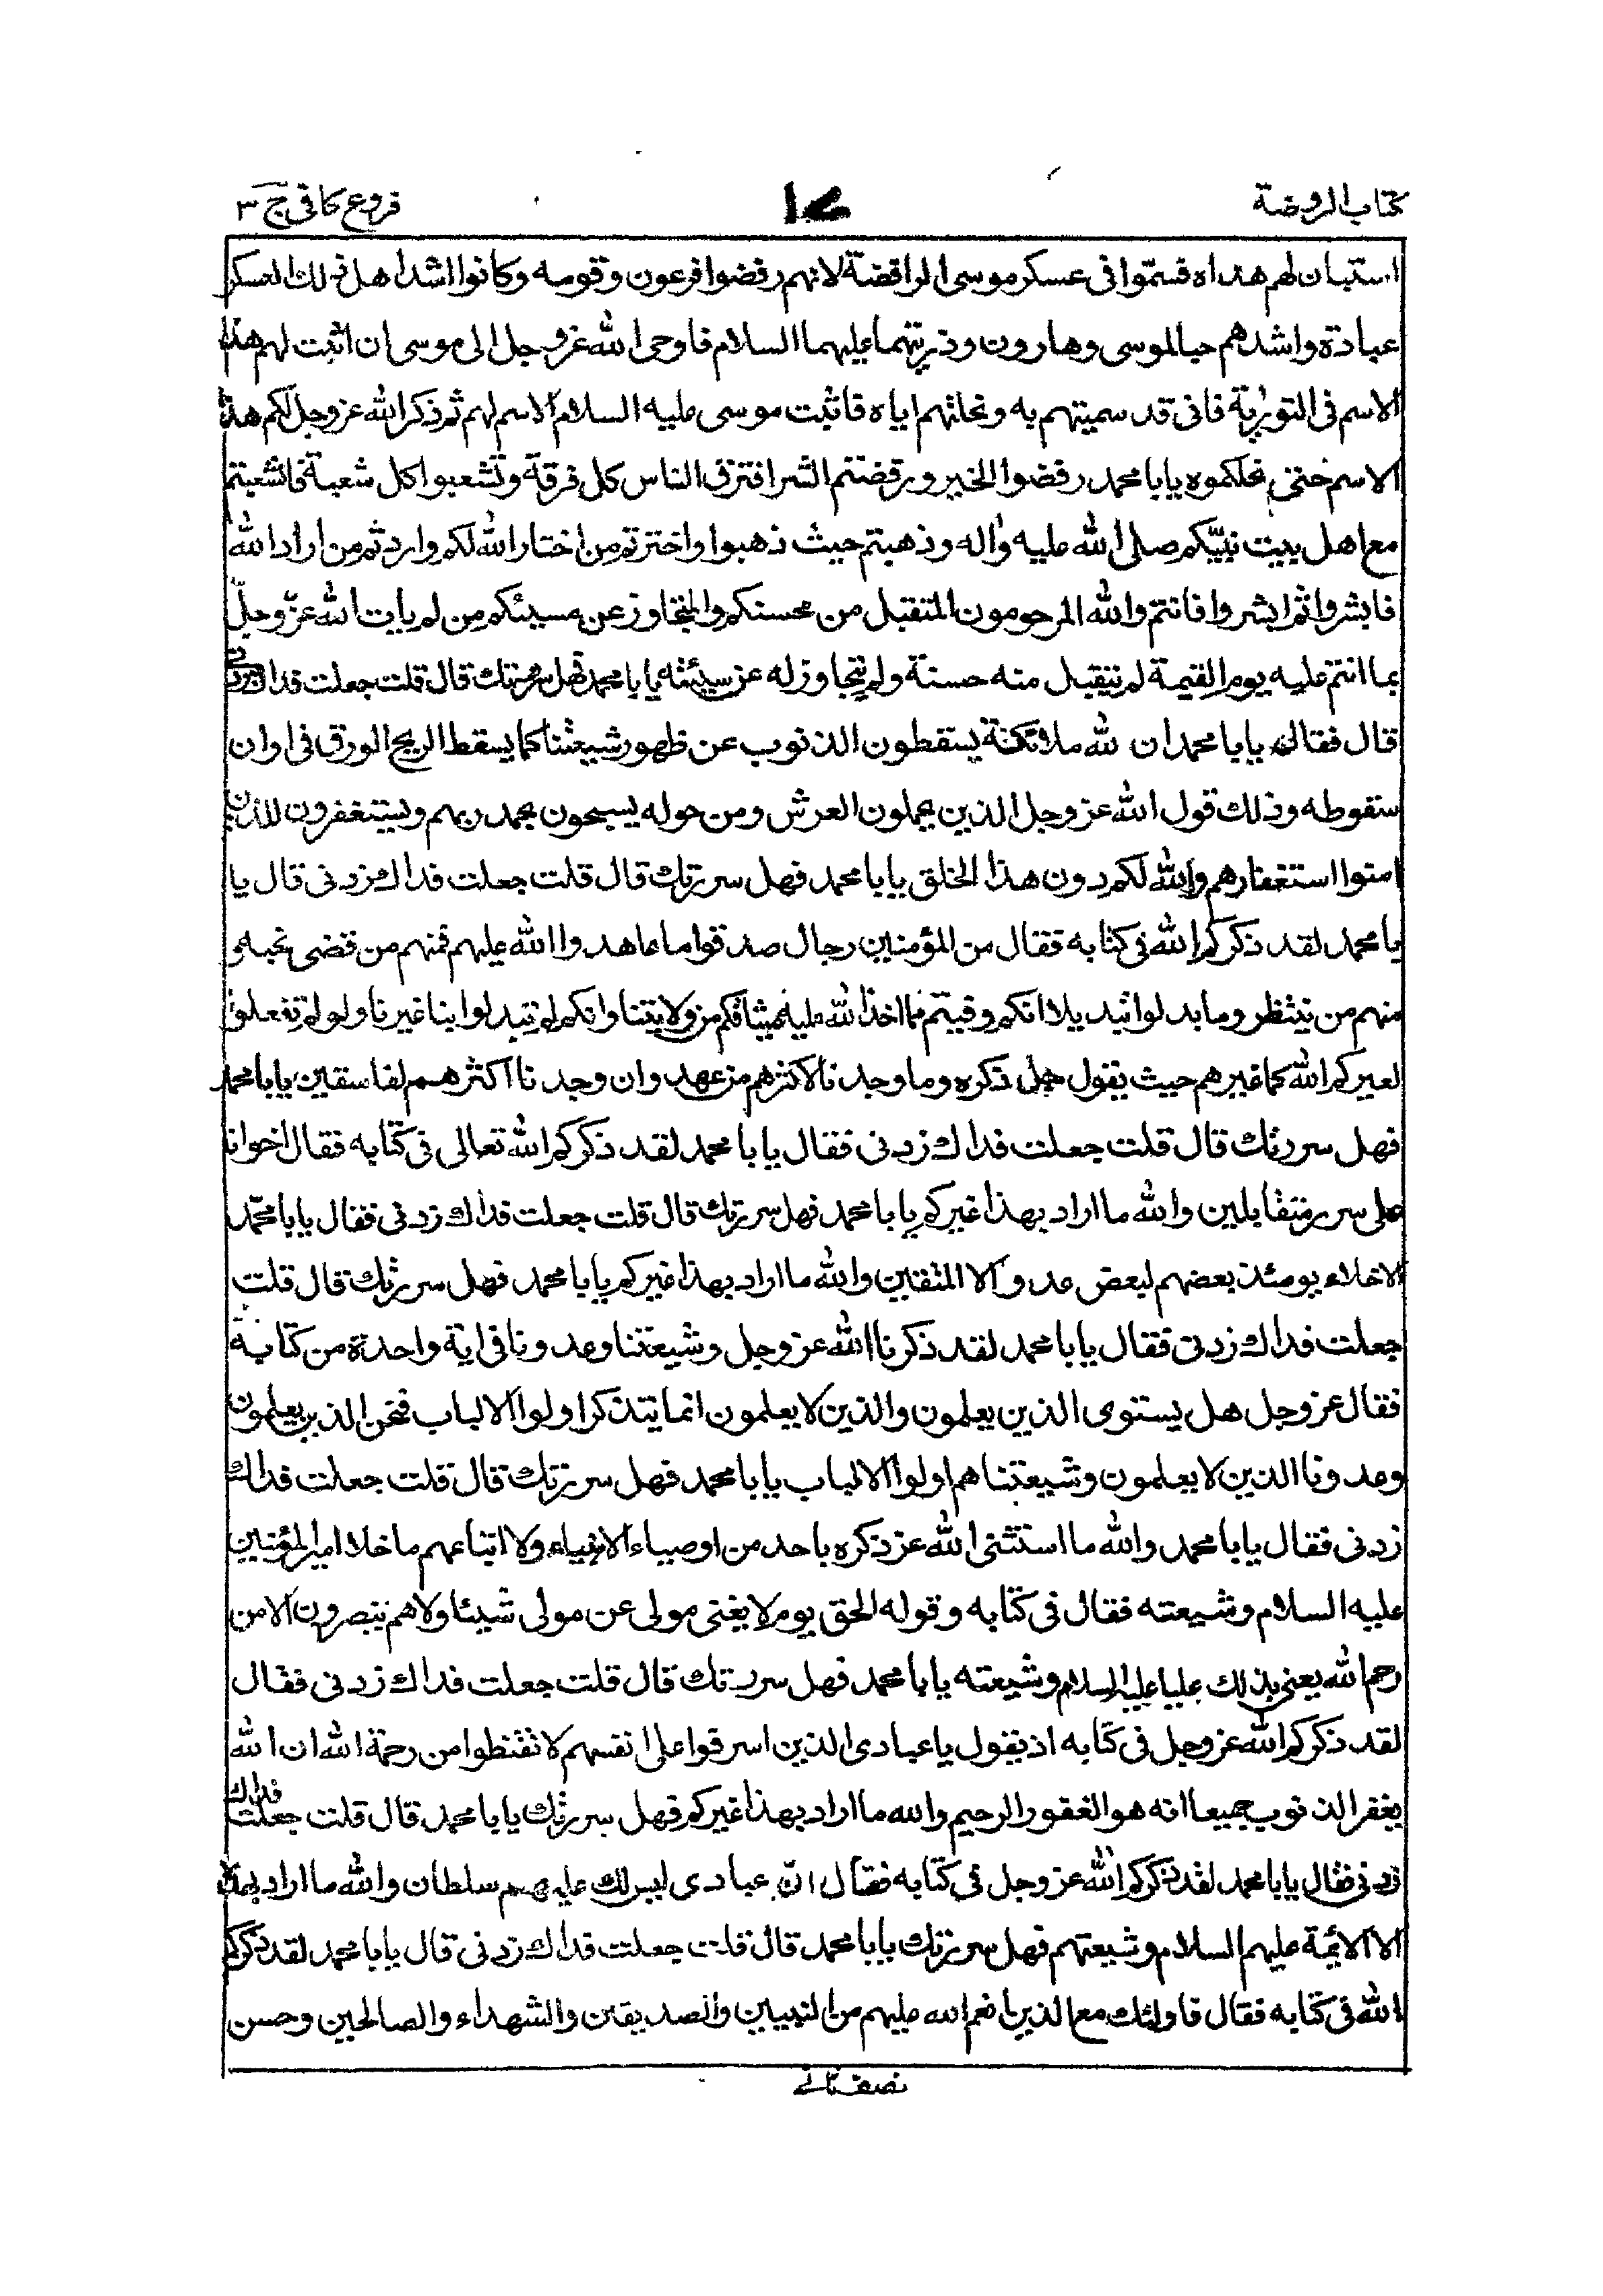 كتاب الروضة
فروع كافى ج ٣
استبان لهم هداه فسمّوا فى عسكر موسى الرافضة لانهم رفضوا فرعون وقومه وكانوا اشد اهل ذلك العسكر
عبادة واشدهم حبا لموسى وهارون وذريتهما عليهما السلام فاوحى الله عز وجل الى موسى ان اثبت لهم هذا
الاسم فى التورية فانى قد سميتهم به ونحلتهم اياه فاثبت موسى عليه السلام الاسم لهم ثم ذكر الله عز وجل لكم هذا
الاسم حتى نحلكموه يابا محمد رفضوا الخير ورفضتم الشر افترق الناس كل فرقة وتشعبوا كل شعبة فانشعبتم
مع اهل بيت نبيّكم صلى الله عليه واله وذهبتم حيث ذهبوا واخترتم من اختار الله لكم واردتم من اراد الله
فابشروا ثم ابشروا فانتم والله المرحومون المتقبل من محسنكم والمتجاوز عن مسيئكم من لم يات الله عزّ وجلّ
بما انتم عليه يوم القيمة لم يتقبل منه حسنة ولم يتجاوز له عن سيئته يابا محمد فهل سررتك قال قلت جعلت فداك زدنى
قال فقال يابا محمد ان لله ملائكة يسقطون الذنوب عن ظهور شيعتنا كما يسقط الريح الورق فى اوان
سقوطه وذلك قول الله عز وجل الذين يحملون العرش ومن حوله يسبحون بحمد ربهم ويستغفرون للذين
امنوا استغفارهم والله لكم دون هذا الخلق يابا محمد فهل سررتك قال قلت جعلت فداك زدنى قال يا
با محمد لقد ذكركم الله فى كتابه فقال من المؤمنين رجال صدقوا ما عاهدوا الله عليهم فمنهم من قضى نحبه و
منهم من ينتظر وما بدلوا تبديلا انكم وفيتم بما اخذ الله عليه ميثاقكم من ولايتنا وانكم لم تبدلوا بنا غيرنا ولو لم تفعلوا
لعيركم الله كما غيرهم حيث يقول جل ذكره وما وجدنا لاكثرهم من عهد وان وجدنا اكثرهم لفاسقين يابا محمد
فهل سررتك قال قلت جعلت فداك زدنى فقال يابا محمد لقد ذكركم الله تعالى فى كتابه فقال اخوانا
على سرر متقابلين والله ما اراد بهذا غيركم يابا محمد فهل سررتك قال قلت جعلت فداك زدنى فقال يابا محمّد
الاخلاء يومئذ بعضهم لبعض عدو الا المتقين والله ما اراد بهذا غيركم يابا محمد فهل سررتك قال قلت
جعلت فداك زدنى فقال يابا محمد لقد ذكرنا الله عز وجل وشيعتنا وعدونا فى اية واحدة من كتابه
فقال عز وجل هل يستوى الذين يعلمون والذين لا يعلمون انما يتذكر اولوا الالباب فنحن الذين يعلمون
وعدونا الذين لا يعلمون وشيعتنا هم اولوا الالباب يابا محمد فهل سررتك قال قلت جعلت فداك
زدنى فقال يابا محمد والله ما استثنى الله عز ذكره باحد من اوصياء الانبياء ولا اتباعهم ما خلا امير المؤمنين
عليه السلام وشيعته فقال فى كتابه وقوله الحق يوم لا يغنى مولى عن مولى شيئا ولا هم ينصرون الا من
رحم الله يعنى بذلك عليا عليه السلام وشيعته يابا محمد فهل سررتك قال قلت جعلت فداك زدنى فقال
لقد ذكركم الله عز وجل فى كتابه اذ يقول يا عبادى الذين اسرفوا على انفسهم لا تقنطوا من رحمة الله ان الله
يغفر الذنوب جميعا انه هو الغفور الرحيم والله ما اراد بهذا غيركم فهل سررتك يابا محمد قال قلت جعلت فداك
زدنى فقال يابا محمد لقد ذكركم الله عز وجل فى كتابه فقال انّ عبادى ليس لك عليهم سلطان والله ما اراد بهذا
الا الائمة عليهم السلام وشيعتهم فهل سررتك يابا محمد قال قلت جعلت فداك زدنى قال يابا محمد لقد ذكركم
الله فى كتابه فقال فاولئك مع الذين انعم الله عليهم من النبيين والصديقين والشهداء والصالحين وحسن
نصف ثانى